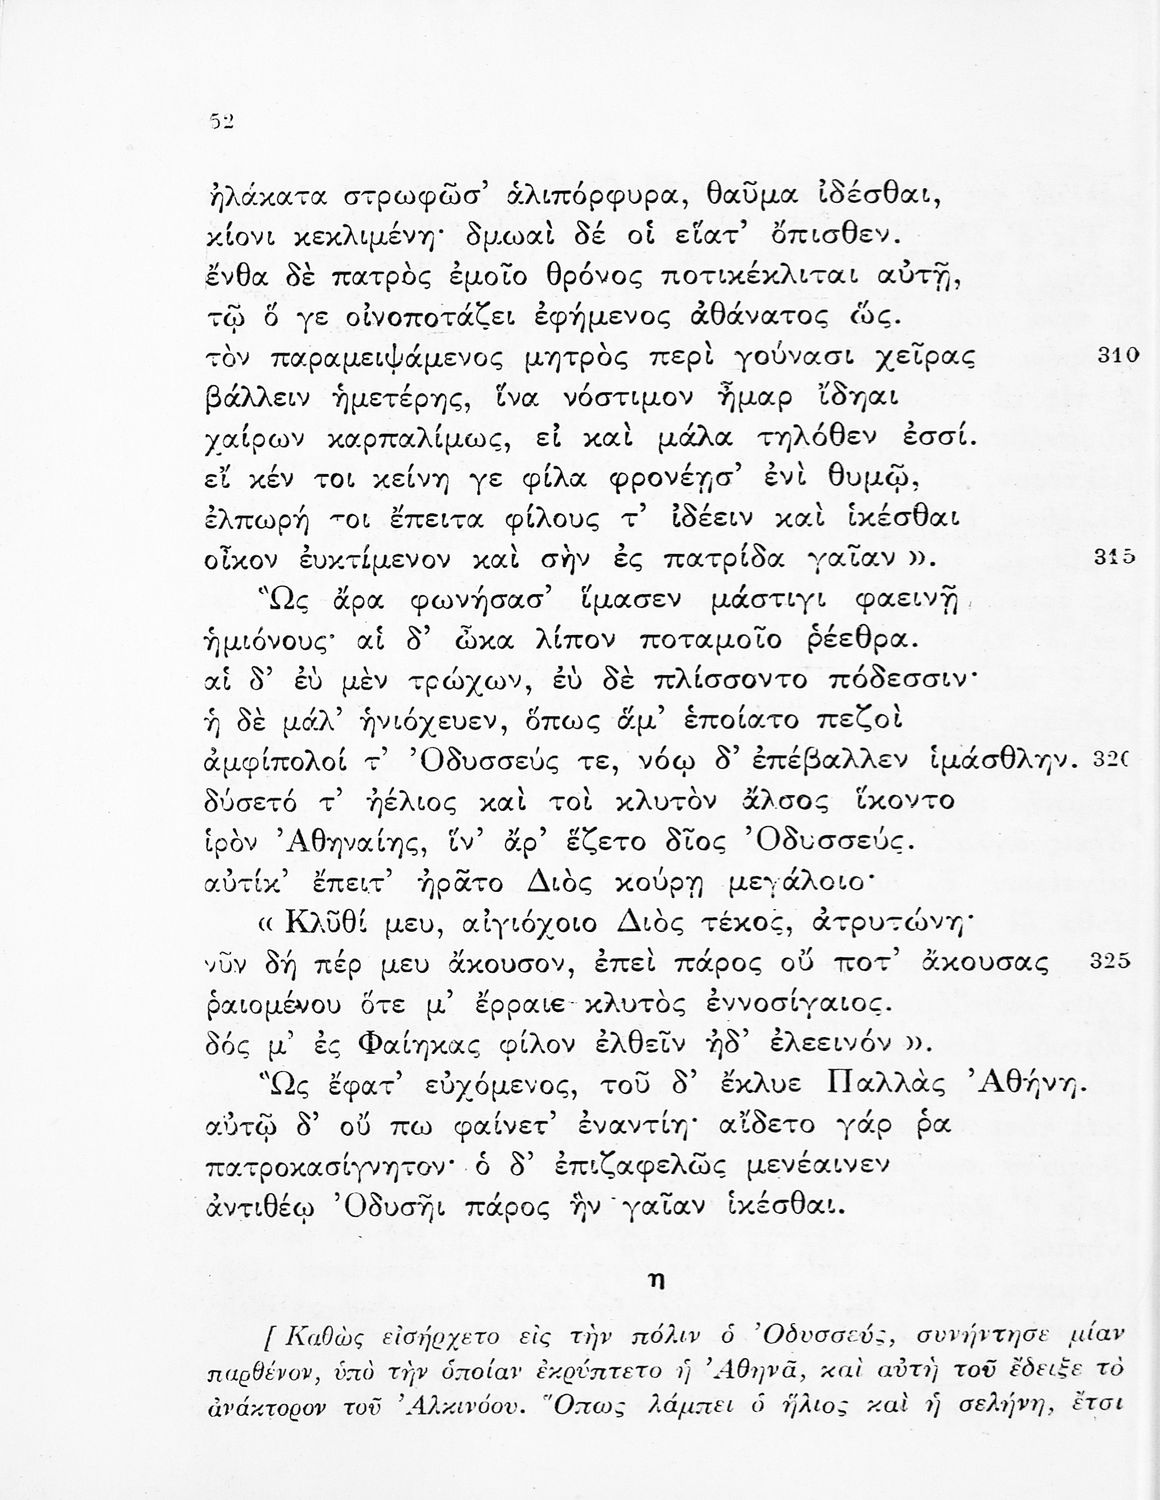 52
ἠλάκατα στρωφῶσ’ ἁλιπόρφυρα, θαῦμα ἰδέσθαι,
κίονι κεκλιμένη· δμωαὶ δέ οἱ εἵατ’ ὄπισθεν.
ἔνθα δὲ πατρὸς ἐμοῖο θρόνος ποτικέκλιται αὐτῇ,
τῷ ὅ γε οἰνοποτάζει ἐφήμενος ἀθάνατος ὥς.
τὸν παραμειψάμενος μητρὸς περὶ γούνασι χεῖρας 310
βάλλειν ἡμετέρης, ἵνα νόστιμον ἦμαρ ἴδηαι
χαίρων καρπαλίμως, εἰ καὶ μάλα τηλόθεν ἐσσί.
εἴ κέν τοι κείνη γε φίλα φρονέῃσ’ ἐνὶ θυμῷ,
ἐλπωρή τοι ἔπειτα φίλους τ’ ἰδέειν καὶ ἱκέσθαι
οἶκον ἐυκτίμενον καὶ σὴν ἐς πατρίδα γαῖαν ». 315
Ὣς ἄρα φωνήσασ’ ἵμασεν μάστιγι φαεινῇ
ἡμιόνους· αἱ δ’ ὦκα λίπον ποταμοῖο ῥέεθρα.
αἱ δ’ ἐὺ μὲν τρώχων, ἐὺ δὲ πλίσσοντο πόδεσσιν·
ἡ δὲ μάλ’ ἡνιόχευεν, ὅπως ἅμ’ ἑποίατο πεζοὶ
ἀμφίπολοί τ’ Ὀδυσσεύς τε, νόῳ δ’ ἐπέβαλλεν ἱμάσθλην. 320
δύσετό τ’ ἠέλιος καὶ τοὶ κλυτὸν ἄλσος ἵκοντο
ἱρὸν Ἀθηναίης, ἵν’ ἄρ’ ἕζετο δῖος Ὀδυσσεύς.
αὐτίκ’ ἔπειτ’ ἠρᾶτο Διὸς κούρῃ μεγάλοιο·
« Κλῦθί μευ, αἰγιόχοιο Διὸς τέκος, ἀτρυτώνη·
νῦν δή πέρ μευ ἄκουσον, ἐπεὶ πάρος οὔ ποτ’ ἄκουσας 325
ῥαιομένου ὅτε μ’ ἔρραιε κλυτὸς ἐννοσίγαιος.
δός μ’ ἐς Φαίηκας φίλον ἐλθεῖν ἠδ’ ἐλεεινόν ».
Ὣς ἔφατ’ εὐχόμενος, τοῦ δ’ ἔκλυε Παλλὰς Ἀθήνη.
αὐτῷ δ’ οὔ πω φαίνετ’ ἐναντίη· αἴδετο γάρ ῥα
πατροκασίγνητον· ὁ δ’ ἐπιζαφελῶς μενέαινεν
ἀντιθέῳ Ὀδυσῆι πάρος ἣν γαῖαν ἱκέσθαι.
η
[ Καθὼς εἰσήρχετο εἰς τὴν πόλιν ὁ Ὀδυσσεύς, συνήντησε μίαν
παρθένον, ὑπὸ τὴν ὁποίαν ἐκρύπτετο ἡ Ἀθηνᾶ, καὶ αὐτὴ τοῦ ἔδειξε τὸ
ἀνάκτορον τοῦ Ἀλκινόου. Ὅπως λάμπει ὁ ἥλιος καὶ ἡ σελήνη, ἔτσι